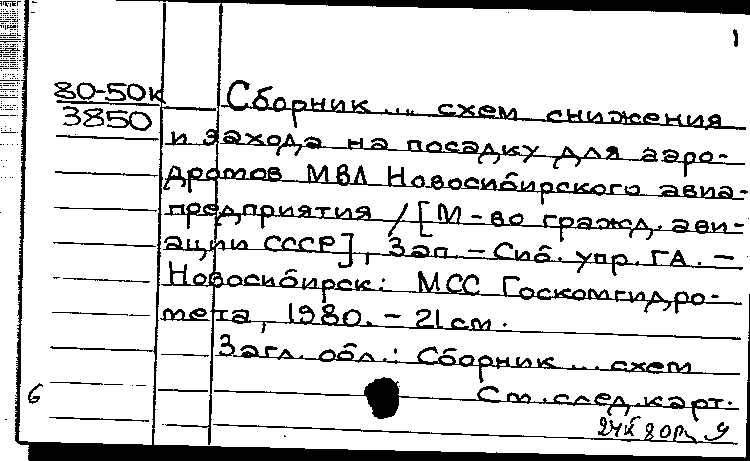 1
80-50к
3850
Сборник ... схем снижения
и захода на посадку для аэро-
дромов МВЛ Новосибирского авиа-
предприятия / [М-во гражд. ави-
ации СССР], Зап.-Сиб. упр. ГА. -
Новосибирск: МСС Госкомгидро-
мета, 1980. - 21 см.
Загл. обл.: Сборник ... схем
См. след. карт.
6